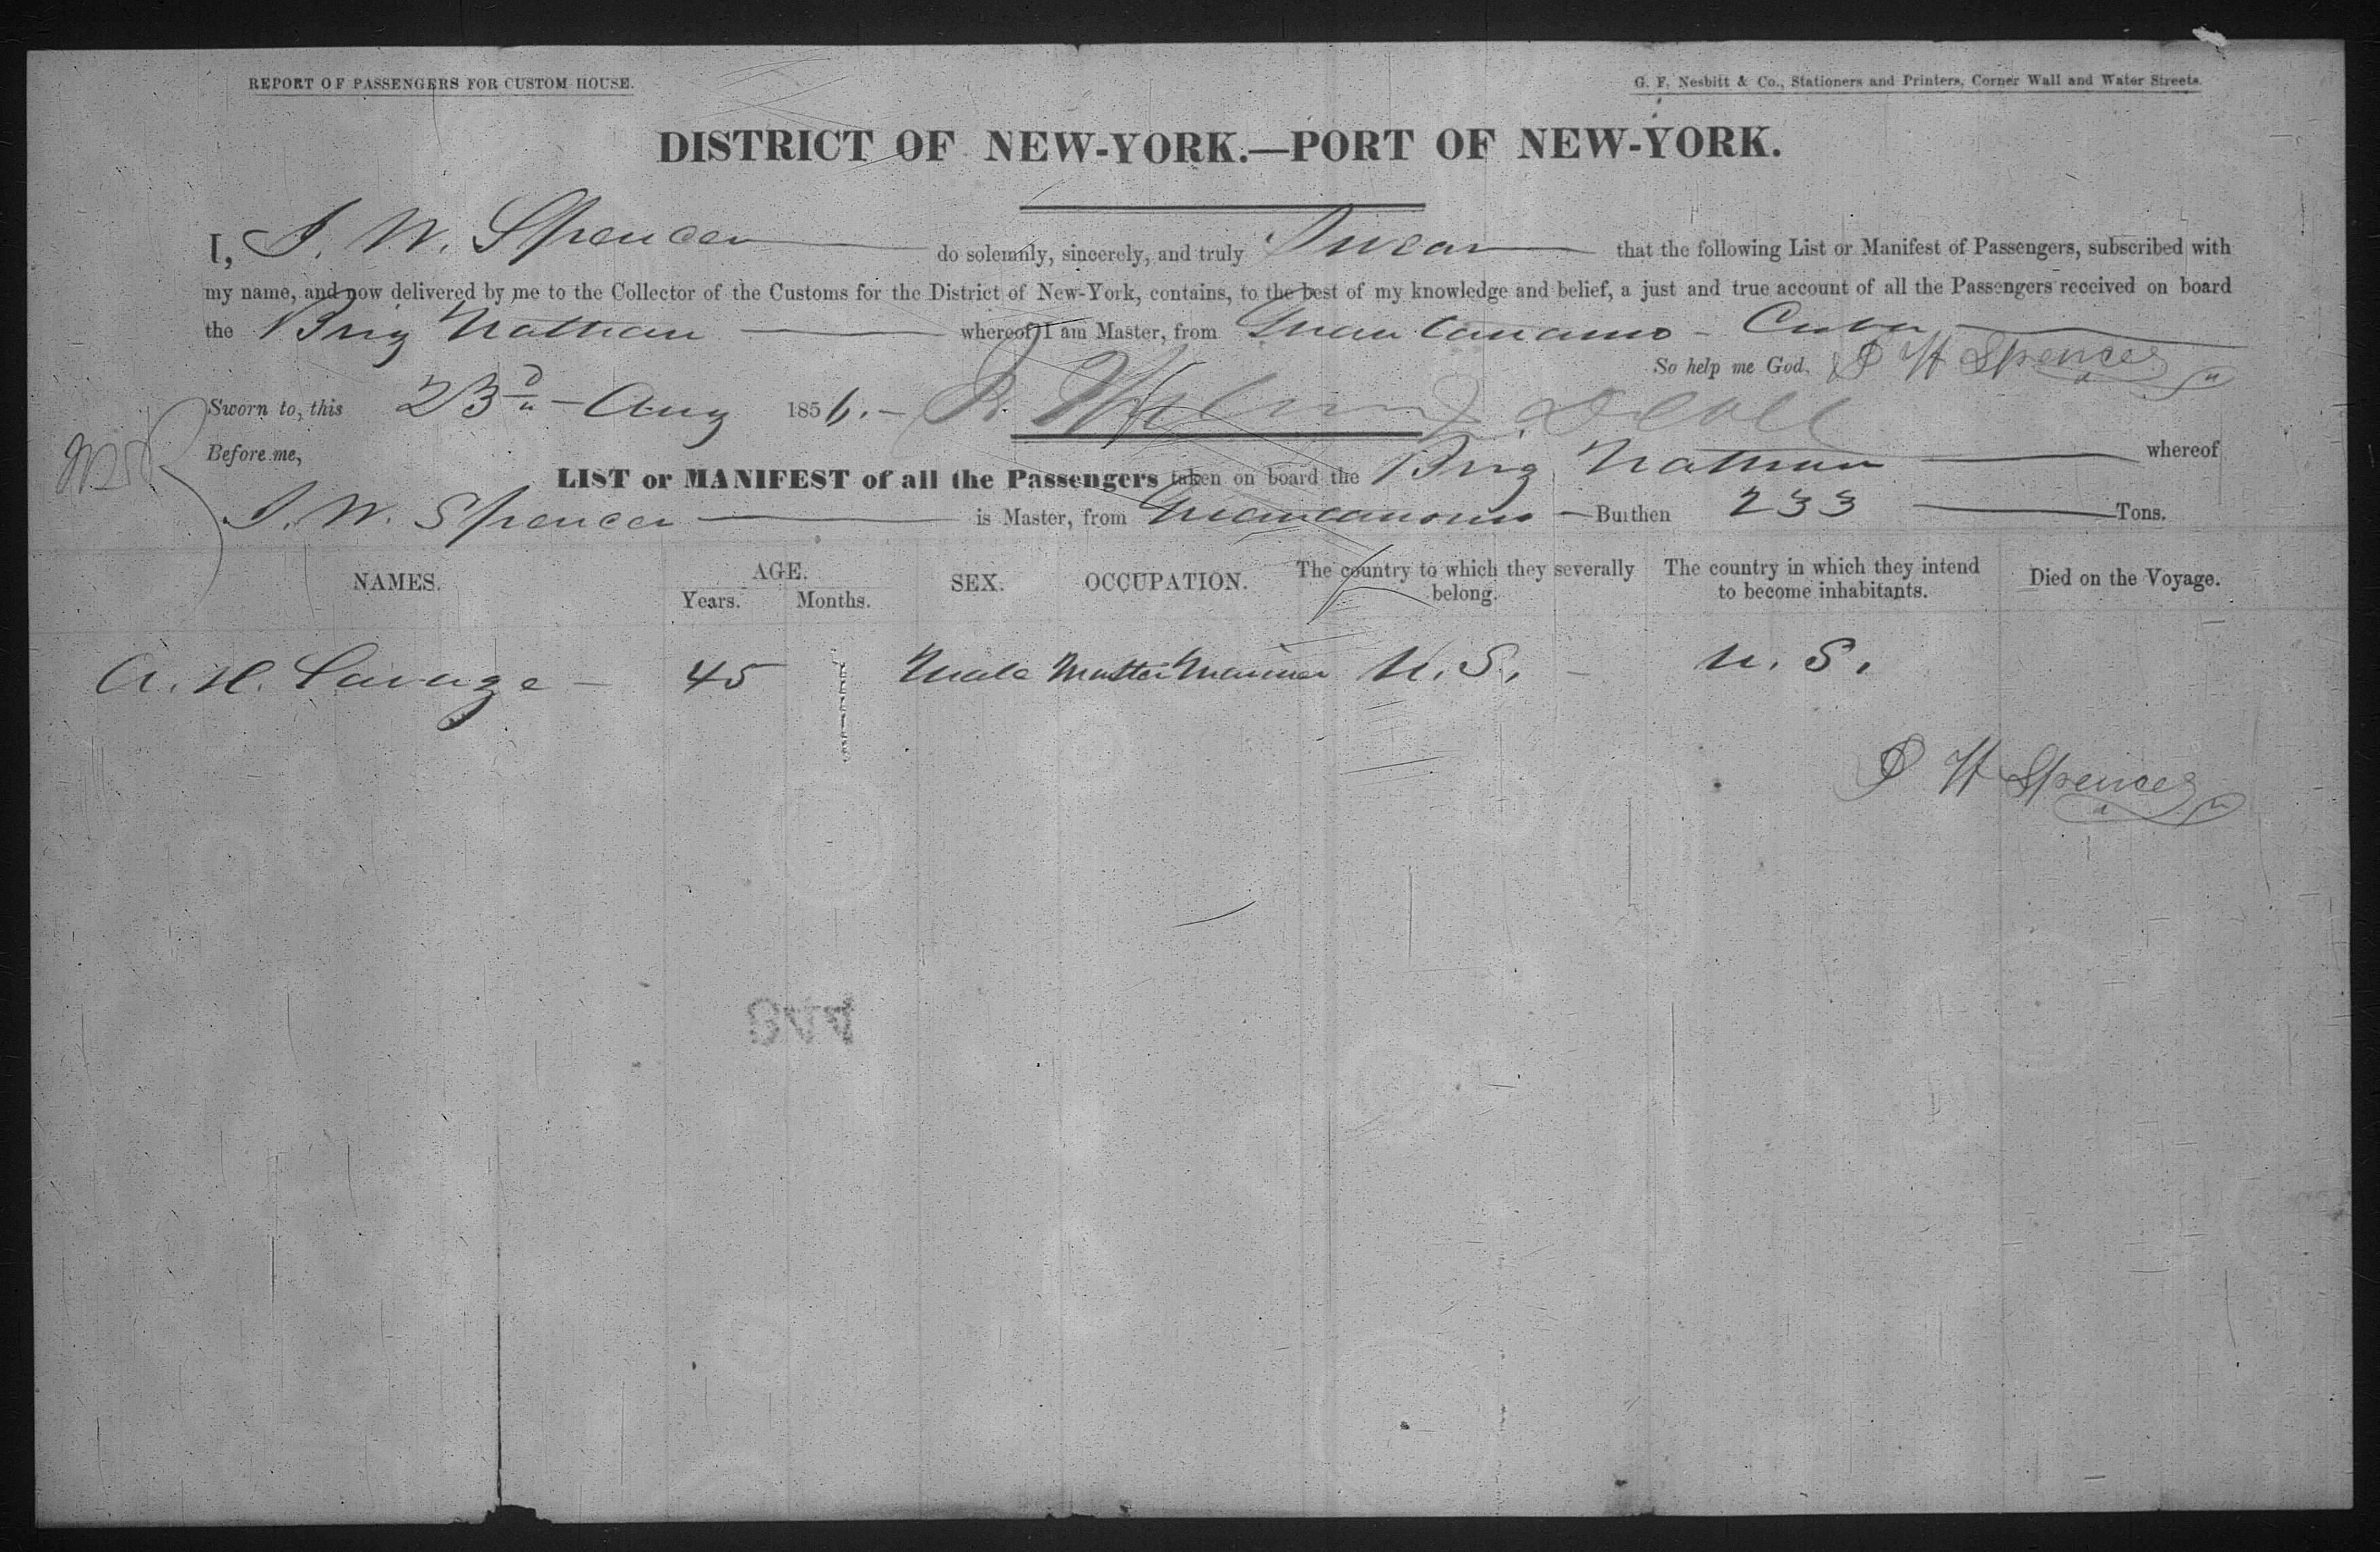 REPORT OF PASSENGERS FOR CUSTOM HOUSE.
G. F. Nesbitt & Co., Stationers and Printers, Corner Wall and Water Streets.
DISTRICT OF NEW-YORK.—PORT OF NEW-YORK.
I, J. W. Spencer do solemnly, sincerely, and truly Swear that the following List or Manifest of Passengers, subscribed with
my name, and now delivered by me to the Collector of the Customs for the District of New-York, contains, to the best of my knowledge and belief, a just and true account of all the Passengers received on board
the Brig Nathan whereof I am Master, from Guantanamo - Cuba
So help me God. J W Spencer
Sworn to, this 23d - Aug 1856. -
Before me,
LIST or MANIFEST of all the Passengers taken on board the Brig Nathan whereof
J. W. Spencer is Master, from Guantanamo - Burthen 233 Tons.
NAMES. AGE. SEX. OCCUPATION. The country to which they severally belong. The country in which they intend to become inhabitants. Died on the Voyage.
Years. Months.
A. H. Savage - 45 Male Master Mariner U. S. - U. S.
J W Spencer
844